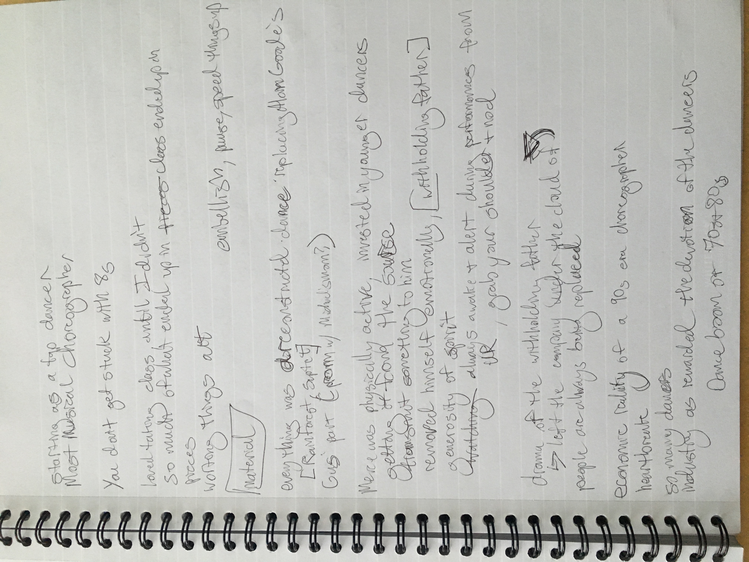 starting as a tap dancer
Most Musical Choreographer
You don't get stuck with 8s
Loved taking class until I didn't
So much of what ended up in class ended up in
pieces
Working things out embellish, pause, speed things up
material
everything was deconstructed dance replacing Alan Goode's
[Rainforest Septet]
Gus' part
Merce was physically active, invested in younger dancers
getting it being the
something to him
removed himself emotionally, [withholding father]
generosity of spirit
watching always awake + alert during performances from
UR, grab your shoulder + nod
drama of the withholding father
↳ left the company under the cloud of
people are always being replaced
economic reality of a 90s era choreographer
heartbreak
so many dancers
industry as remained the devotion of the dancers
Dance boom of 70s + 80s